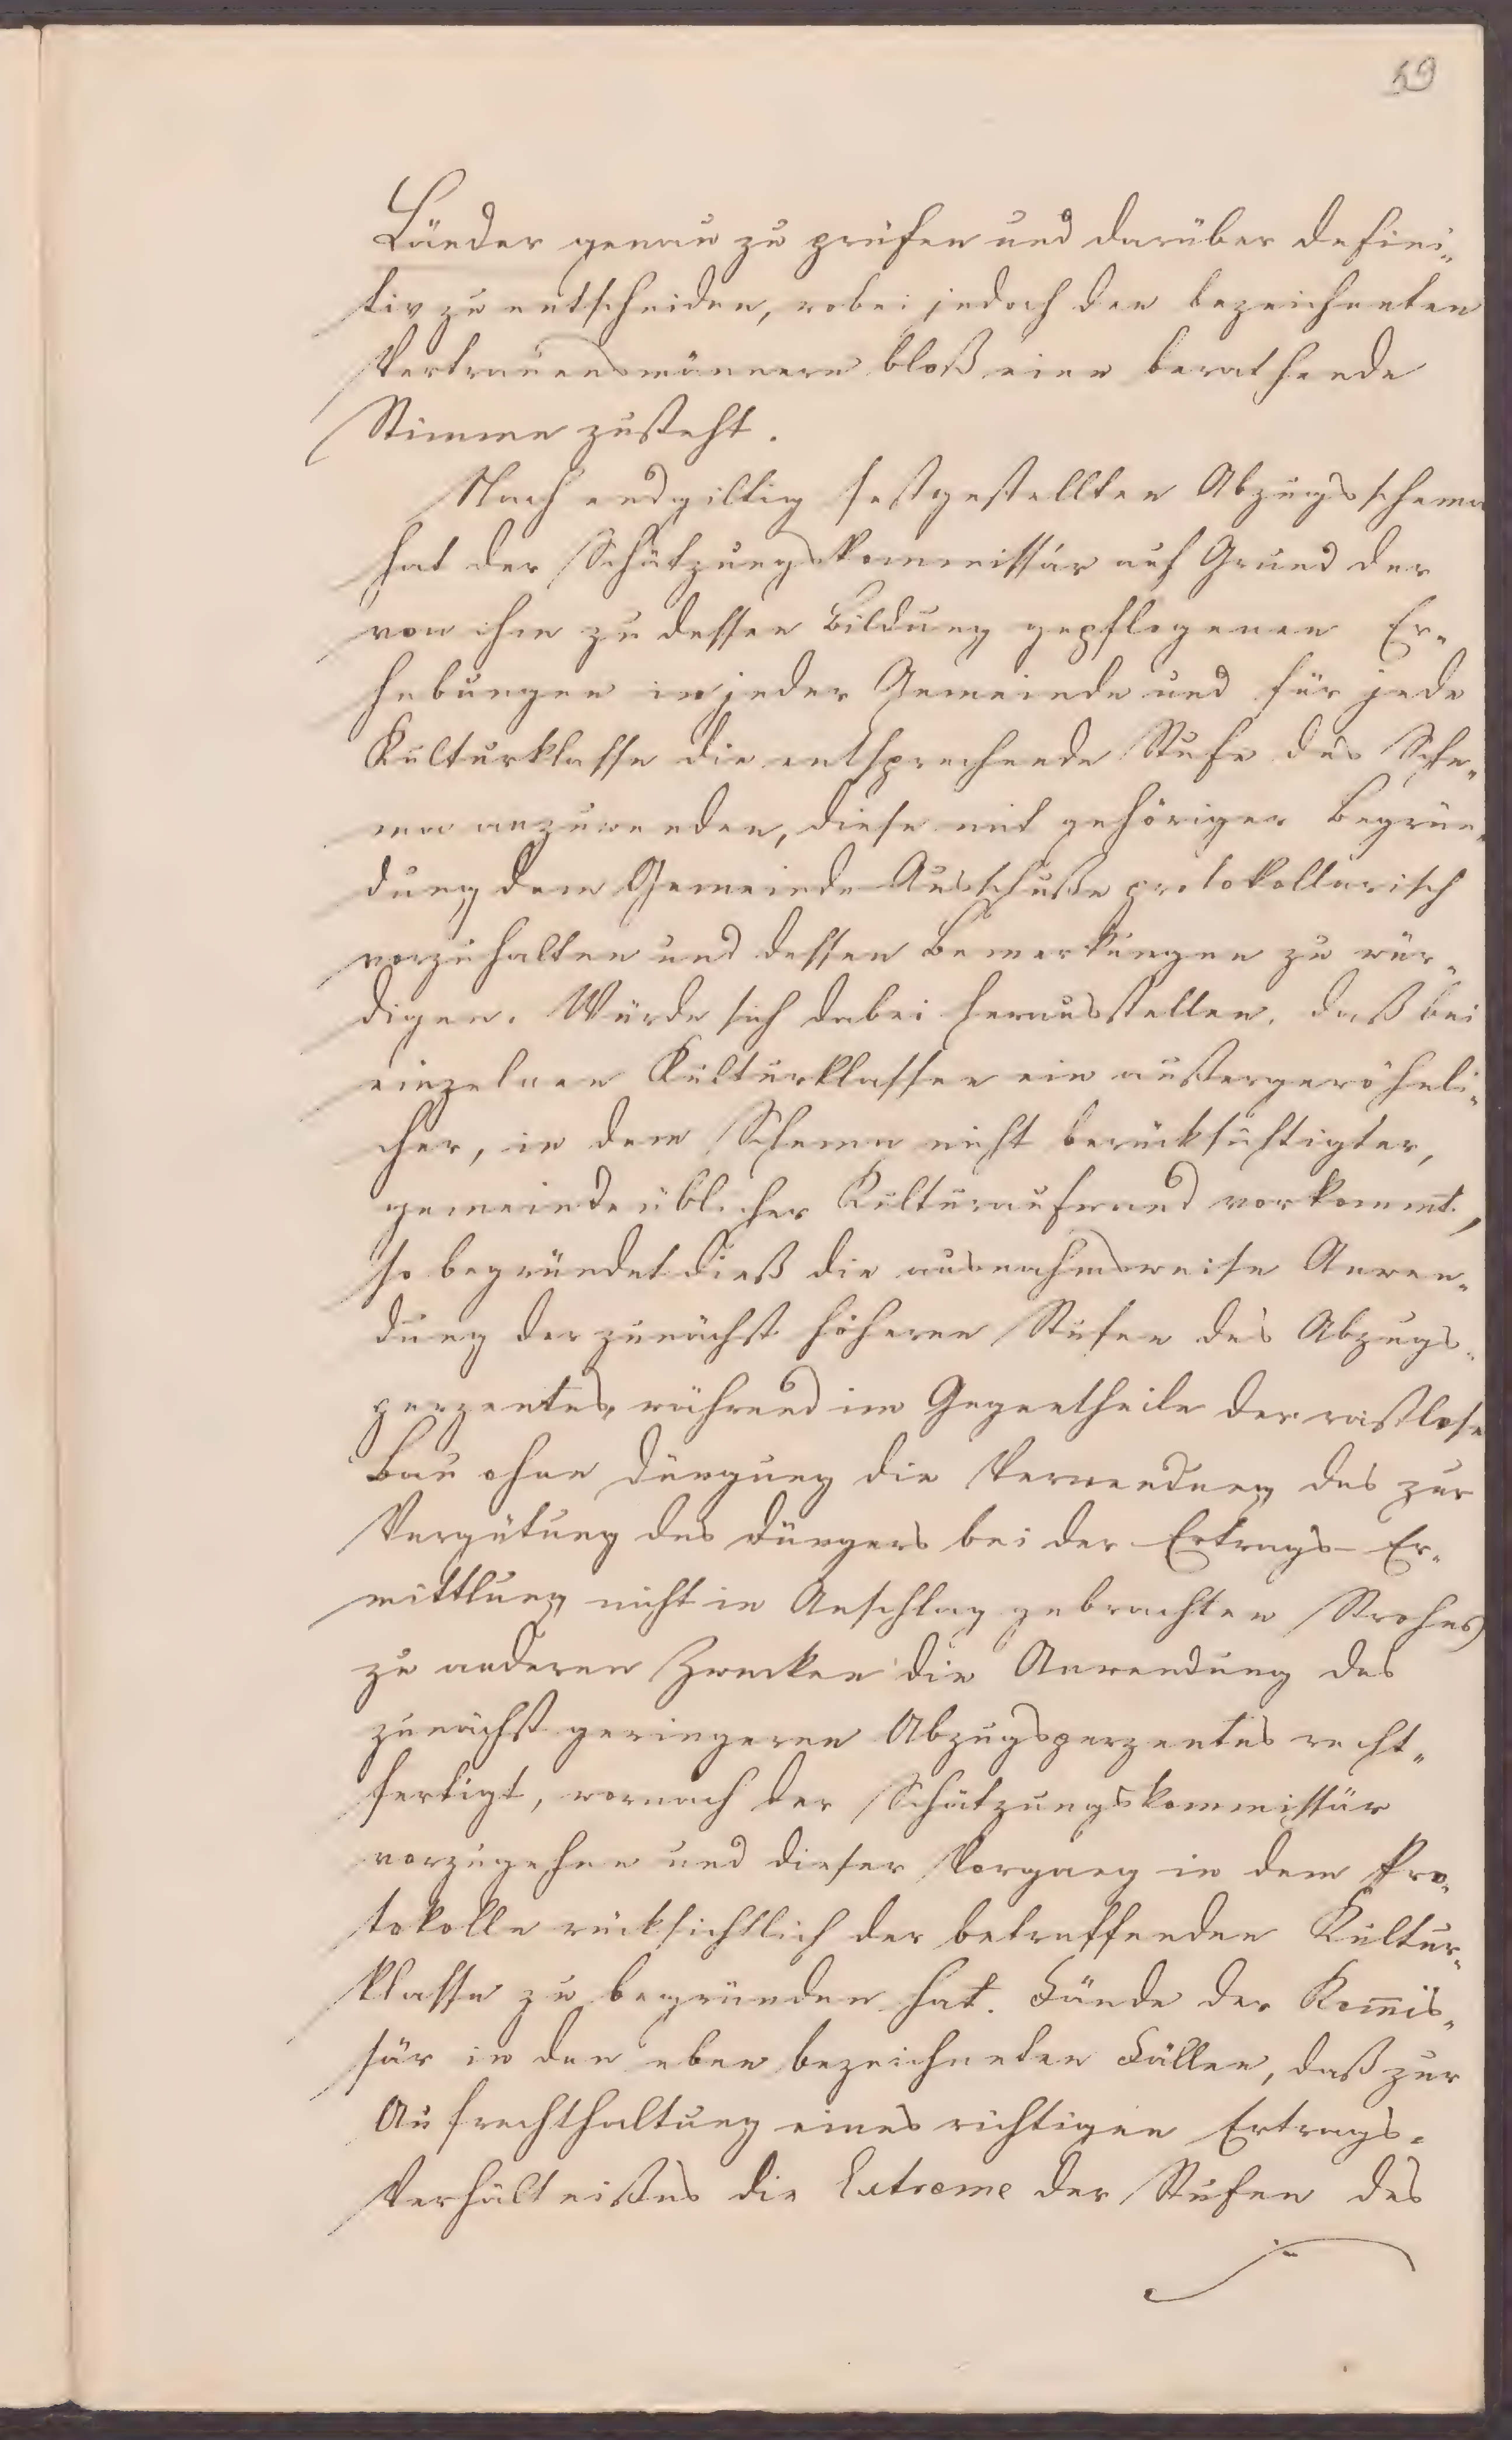 59
Länder genau zu prüfen und darüber defini-
tiv zu entscheiden, wobei jedoch den bezeichneten
Vertrauensmännern bloß eine berathende
Stimme zusteht.
Nach endgiltig festgestellten Abzugsschema
hat der Schätzungskommissär auf Grund der
von ihm zu dessen Bildung gepflogenen Er-
hebungen in jeder Gemeinde und für jede
Kulturklasse die entsprechende Stufe des Sche-
ma anzuwenden, diese mit gehöriger Begrün-
dung dem Gemeinde Ausschuße protokollarisch
vorzuhalten und dessen Bemerkungen zu wür-
digen. Würde sich dabei herausstellen, daß bei
einzelnen Kulturklassen ein außergewöhnli-
cher, in dem Schema nicht berücksichtigter,
gemeindeüblicher Kulturaufwand vorkommt,
so begründet dieß die ausnahmsweise Anwen-
dung der zunächst höheren Stufen des Abzugs-
perzentes, während im Gegentheile der rastlose
Bau ohne Düngung die Verwendung des zur
Vergütung des Düngers bei der Ertrags-Er-
mittlung nicht in Anschlag gebrachten Strohes
zu anderen Zwecken die Anwendung des
zunächst geringeren Abzugsperzentes recht-
fertigt, wornach der Schätzungskommissär
vorzugehen und dieser Vorgang in dem Pro-
tokolle rücksichtlich der betreffenden Kultur-
klasse zu begründen hat. Fände der Kom̅is-
sär in den eben bezeichneten Fällen, daß zur
Aufrechthaltung eines richtigen Ertrags-
Verhältnißes die Extreme der Stufen des